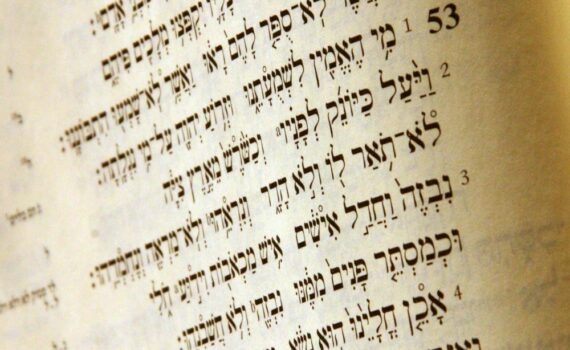 יִקְפְּצוּ מְלָכִים פִּיהֶם
לֹא־סֻפַּר לָהֶם רָאוּ וַאֲשֶׁר לֹא־שָׁמְעוּ הִתְבּוֹנָנוּ׃
53 1 מִי הֶאֱמִין לִשְׁמֻעָתֵנוּ וּזְרוֹעַ יְהוָה עַל־מִי נִגְלָתָה׃
2 וַיַּעַל כַּיּוֹנֵק לְפָנָיו וְכַשֹּׁרֶשׁ מֵאֶרֶץ צִיָּה
לֹא־תֹאַר לוֹ וְלֹא הָדָר וְנִרְאֵהוּ וְלֹא־מַרְאֶה וְנֶחְמְדֵהוּ׃
3 נִבְזֶה וַחֲדַל אִישִׁים אִישׁ מַכְאֹבוֹת וִידוּעַ חֹלִי
וּכְמַסְתֵּר פָּנִים מִמֶּנּוּ נִבְזֶה וְלֹא חֲשַׁבְנֻהוּ׃
4 אָכֵן חֳלָיֵנוּ הוּא נָשָׂא